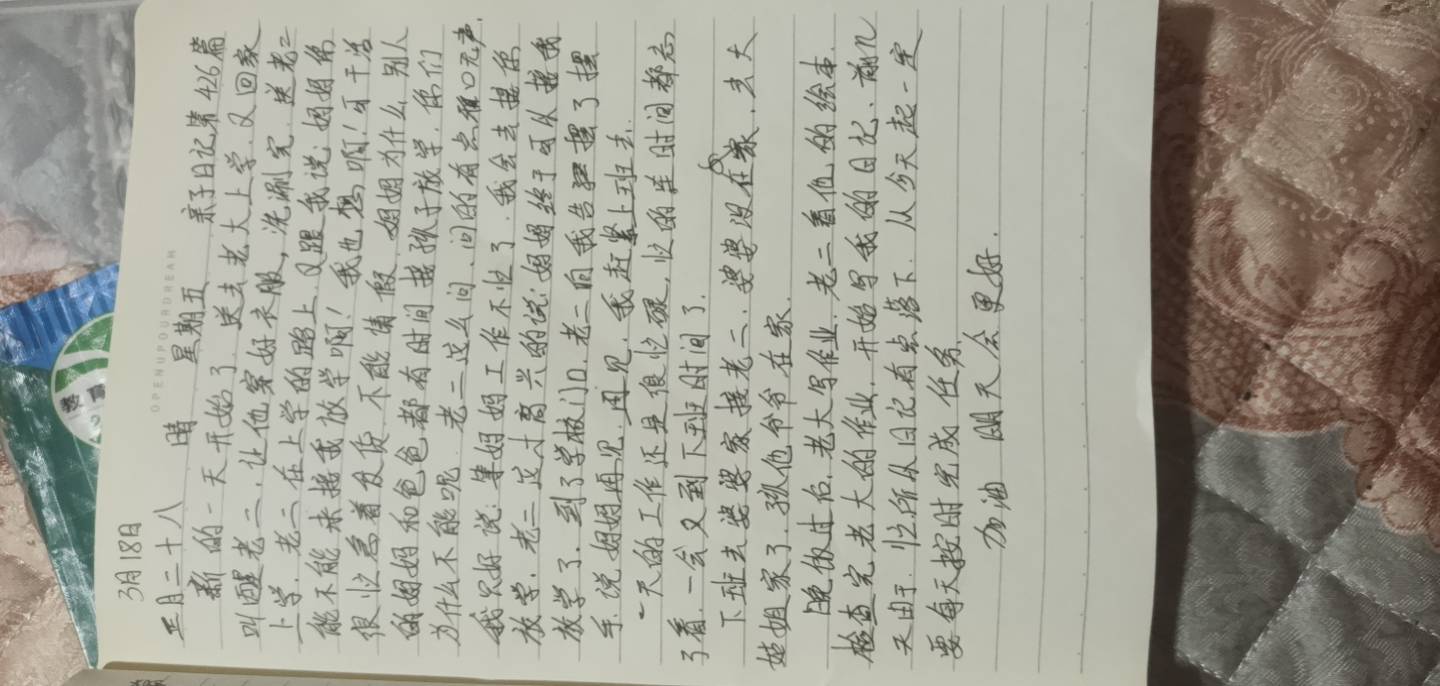 OPENUPOURDREAM
3月18日
正月二十八 晴 星期五 亲子日记第426篇
新的一天开始了,送去老大上学,又回家
叫醒老二,让他穿好衣服,洗涮完,送老二
上学,老二在上学的路上,又跟我说:妈妈你
能不能来接我放学啊!我也想啊!可干活
很忙急着发货,不能请假,妈妈为什么,别人
的妈妈和爸爸都有时间接孩子放学,你们
为什么不能呢,老二这么问,问的有点哑口无声,
我只好说:等妈妈工作不忙了,我会去接你
放学,老二这才高兴的说:妈妈终于可以接我
放学了,到了学校门口,老二向我告摆了摆
手,说妈妈再见,再见,我赶紧上班去.
一天的工作还是很忙碌,忙的连时间都忘
了看,一会又到下班时间了.
下班去婆婆家接老二,婆婆没在家,去大
姑姐家了,孩他爷爷在家.
晚饭过后,老大写作业,老二看他的绘本,
检查完老大的作业,开始写我的日记,前几
天由于,忙所以日记有点落下,从今天起一定
要每天按时完成任务.
加油 明天会更好.
教育